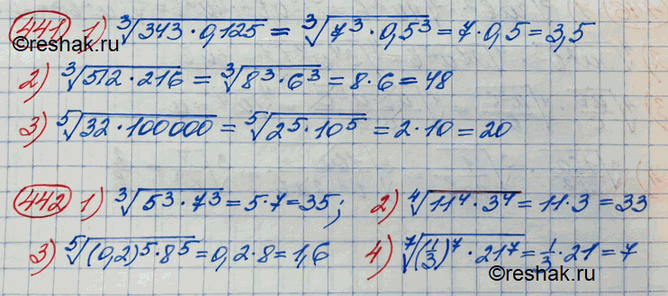 441 1) ∛(343 · 0,125) = ∛(7³ · 0,5³) = 7 · 0,5 = 3,5
©reshak.ru
2) ∛(512 · 216) = ∛(8³ · 6³) = 8 · 6 = 48
3) ⁵√(32 · 100000) = ⁵√(2⁵ · 10⁵) = 2 · 10 = 20
442 1) ∛(5³ · 7³) = 5 · 7 = 35; 2) ⁴√(11⁴ · 3⁴) = 11 · 3 = 33
3) ⁵√((0,2)⁵ · 8⁵) = 0,2 · 8 = 1,6 4) ⁷√((1/3)⁷ · 21⁷) = 1/3 · 21 = 7
©reshak.ru